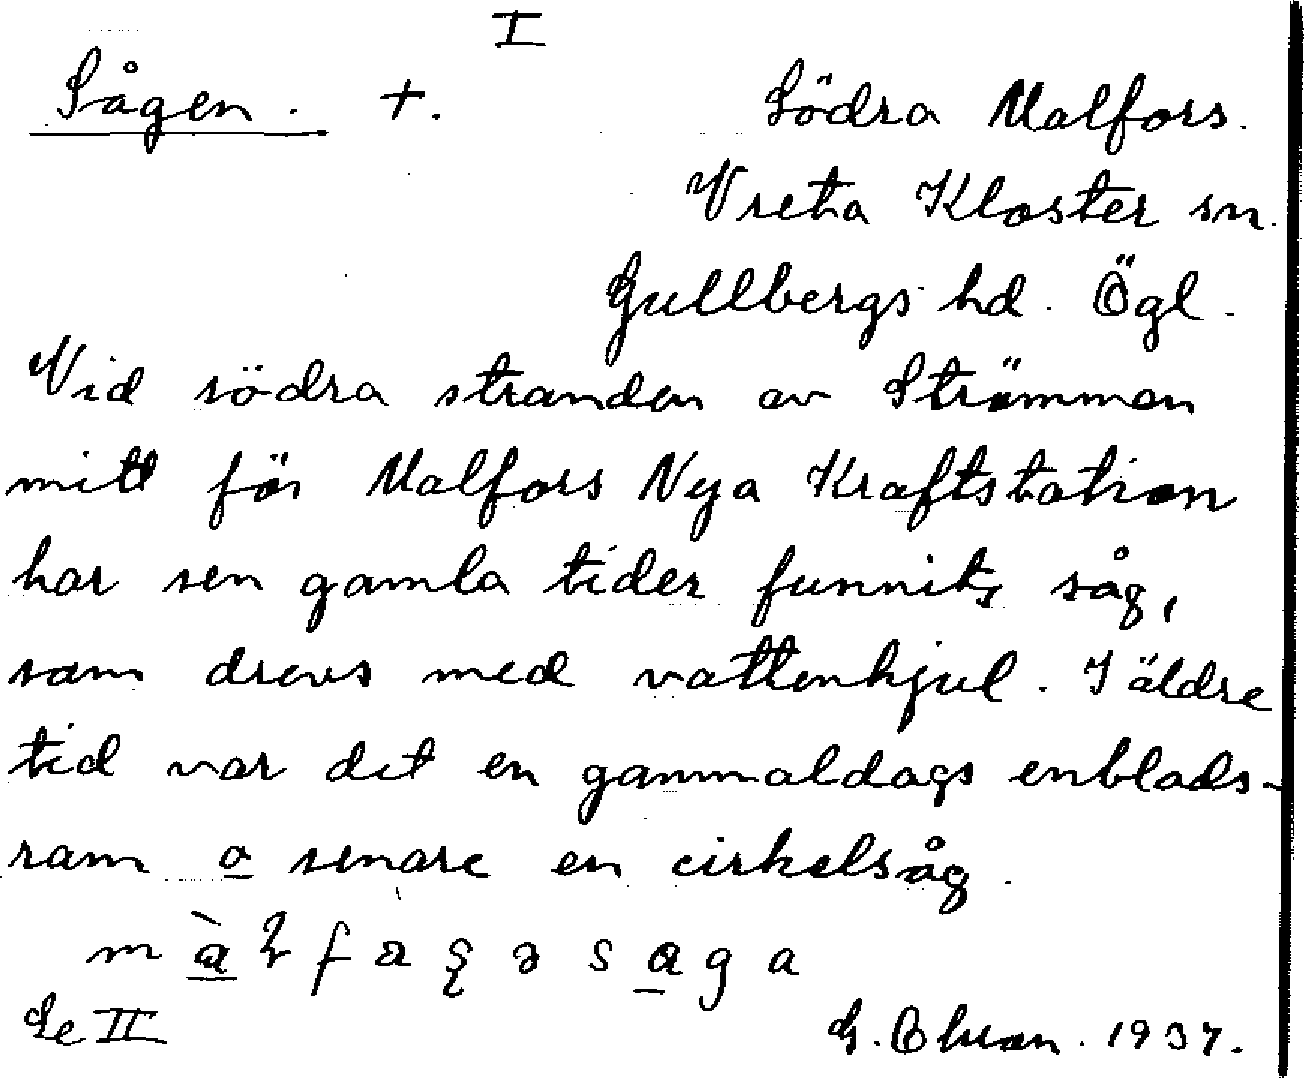 I
Sågen. +. Södra Malfors.
Vreta Kloster sn.
Gullbergs hd. Ögl.
Vid södra stranden av Strömmen
mitt för Malfors Nya Kraftstation
har sen gamla tider funnits såg,
som drevs med vattenhjul. I äldre
tid var det en gammaldags enblads-
ram o senare en cirkelsåg.
Se II G. 1937.